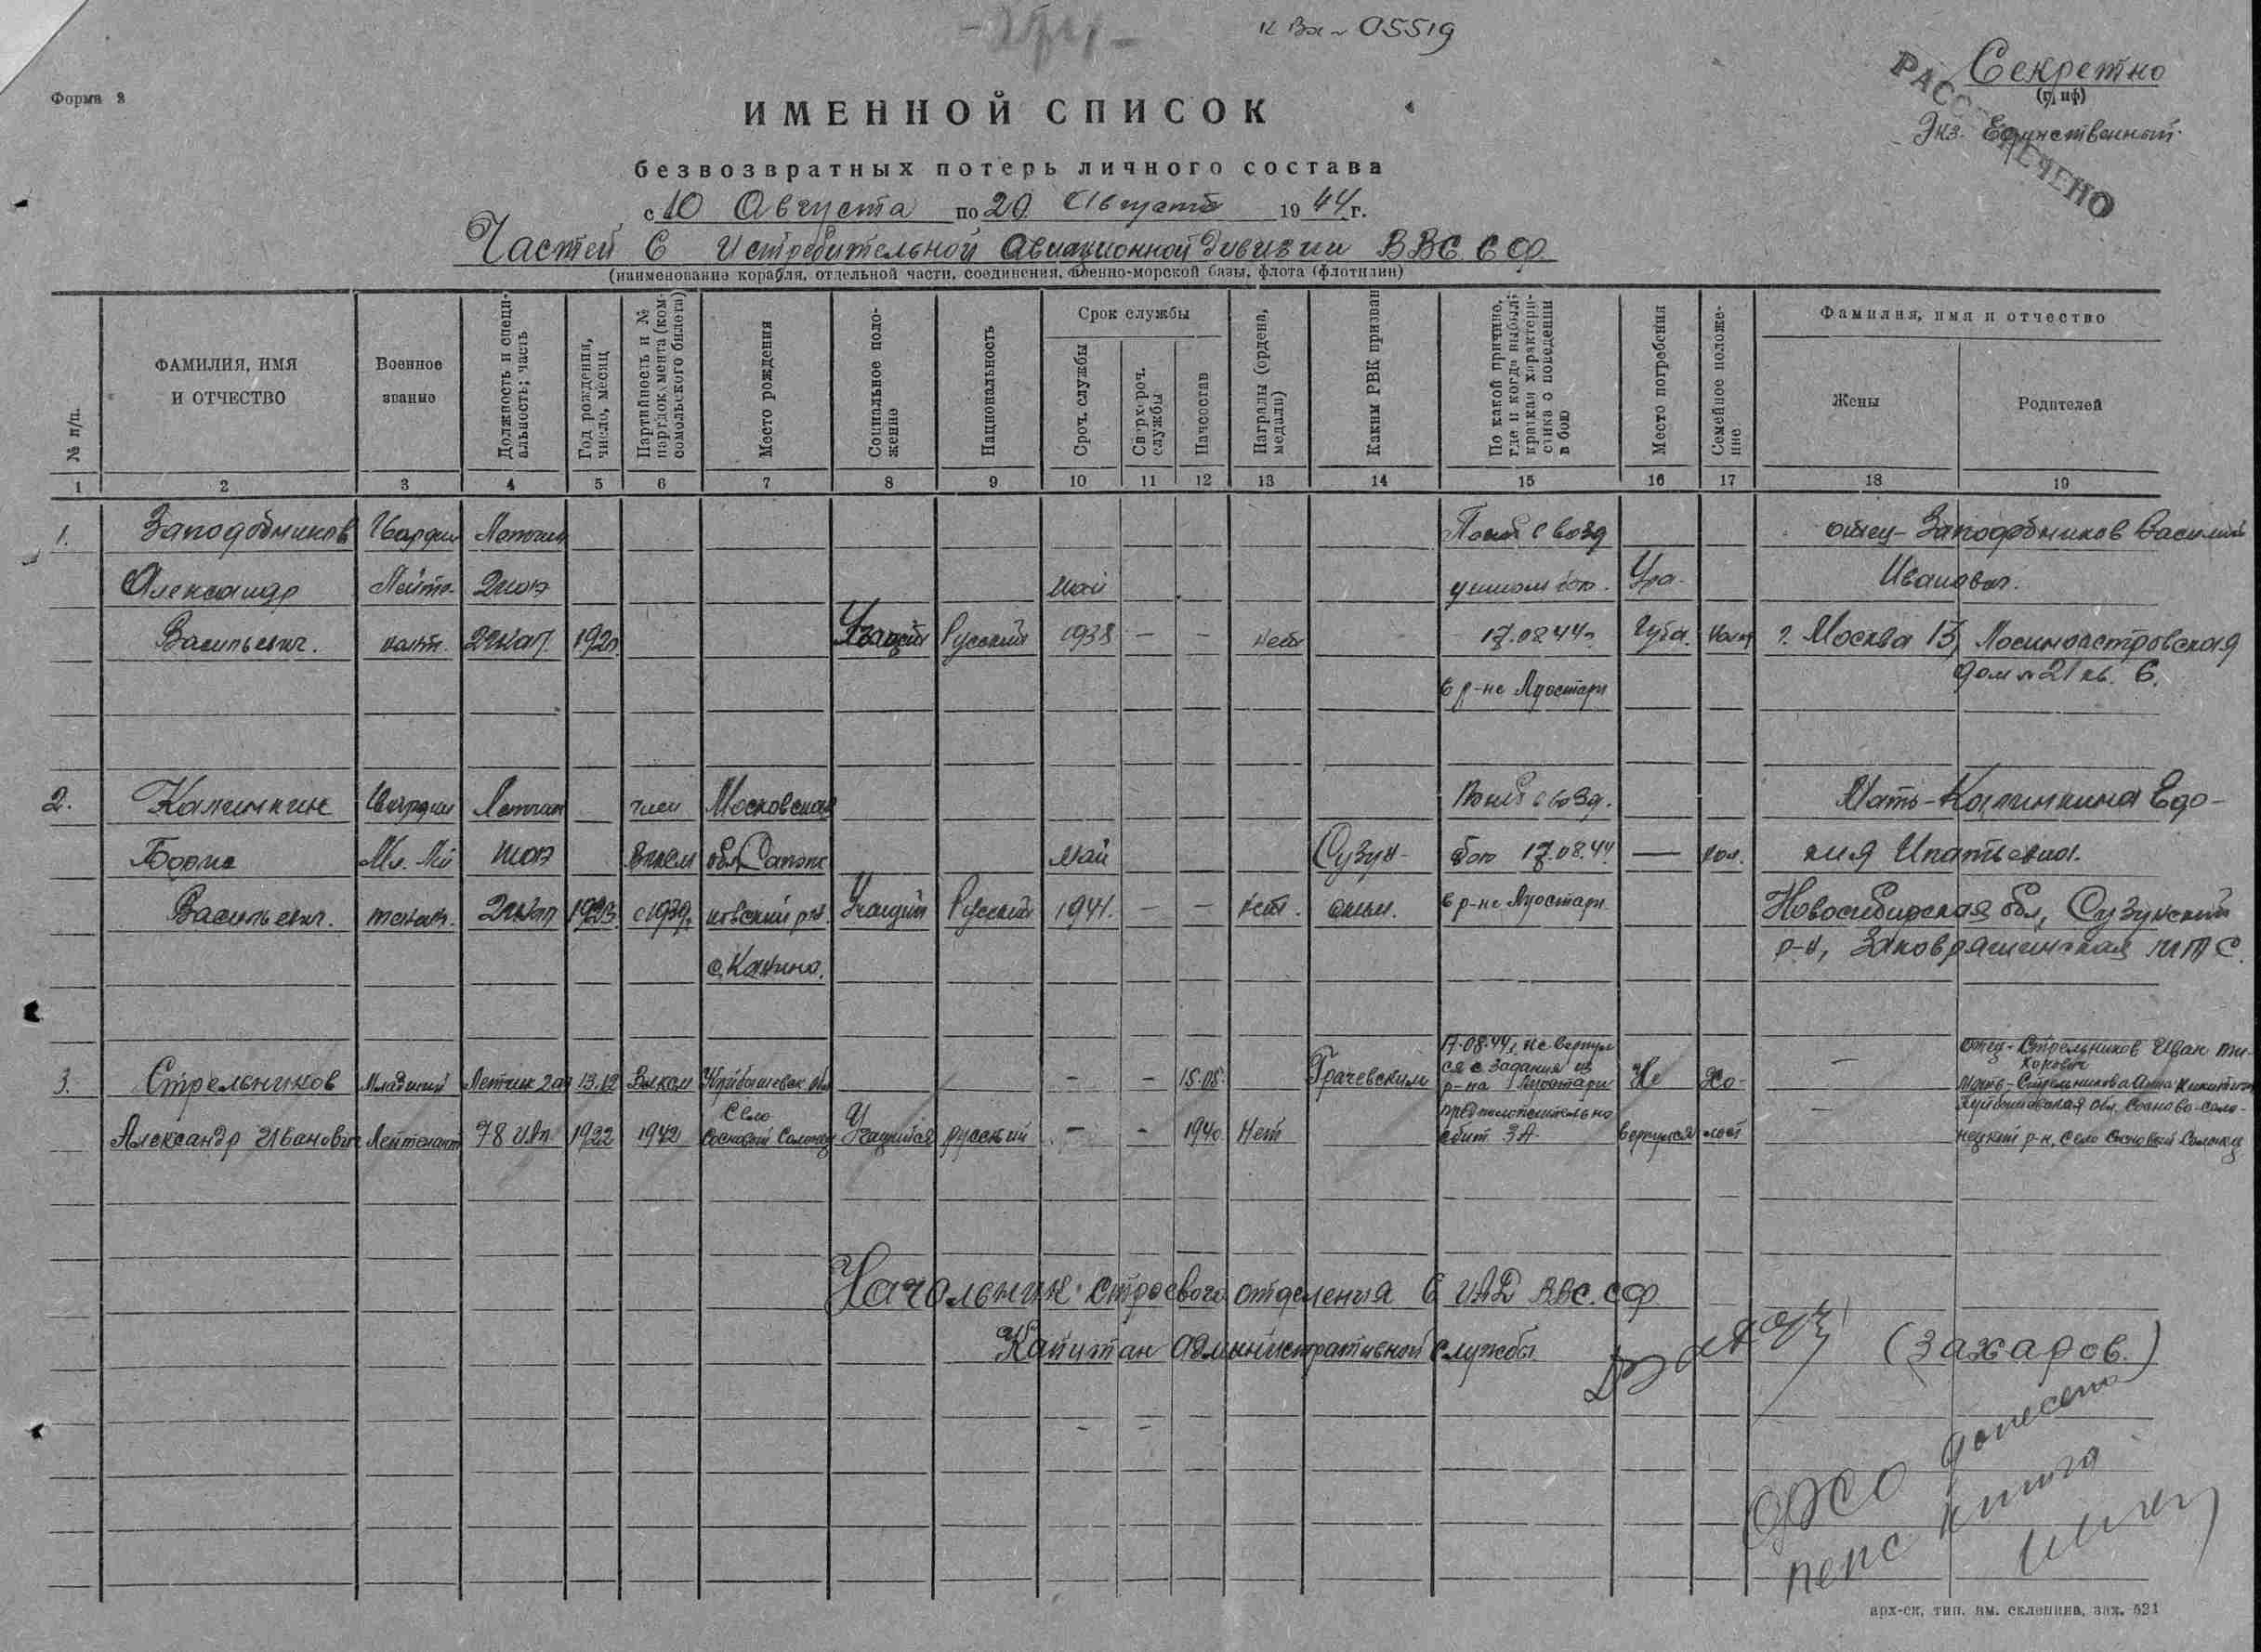 К Вх ~ 05519
Секретно
(гриф)
Экз. Единственный.
РАССЕКРЕЧЕНО
Форма 2
ИМЕННОЙ СПИСОК
безвозвратных потерь личного состава
с 10 Августа по 20 Августа 1944 г.
Частей 6 Истребительной Авиационной Дивизии ВВС СФ.
(наименование корабля, отдельной части, соединения, военно-морской базы, флота (флотилии)
№ п/п.
ФАМИЛИЯ, ИМЯ И ОТЧЕСТВО
Военное звание
Должность и специальность; часть
Год рождения, число, месяц
Партийность и № партдокумента (комсомольского билета)
Место рождения
Социальное положение
Национальность
Срок службы
Сроч. службы
Сверхсроч. службы
Начсостав
Награды (ордена, медали)
Каким РВК призван
По какой причине, где и когда выбыл; краткая характеристика о поведении в бою
Место погребения
Семейное положение
Фамилия, имя и отчество
Жены
Родителей
1 2 3 4 5 6 7 8 9 10 11 12 13 14 15 16 17 18 19
1. Заподобников Гвардии Летчик Погиб в возд отец - Заподобников Василий
Александр Лейте- 2 гиап май душном бою. Ура- Иванович.
Васильевич. нант. 1920 Учащий Русский 1938 — — нет 17.08.44г. Губа. холост г. Москва 15, Лосиноостровская
в р-не Луостари дом №21 кв. 6.
2. Калинкин Гвардии Летчик член Московская Погиб в возд. Мать - Калинкина Евдо-
Борис Мл. Лей ВЛКСМ обл. май Сузун- бою 17.08.44 — хол. кия Ипатьевна.
Васильевич. тенант. 2 гиап 1923 с 1939г. ский р-н. Учащий Русский 1941. — — нет. ским. в р-не Луостари. Новосибирская обл, Сузунский
с. Канино. р-н, Заковряшинская МТС.
17.08.44г. не вернул отец - Стрельников Иван Ти-
3. Стрельников Младший Летчик 13.12 Влксм Куйбышевск. обл — — 15.08. Грачевским ся с задания из р-на Луостари Не Хо- — мать - Стрельникова Анна Никитична
Село предположительно Куйбышевская обл, Сосново-Соло-
Александр Иванович Лейтенант 78 иап 1922 1942 Сосновый Солонец Учащийся русский — — 1940 Нет сбит ЗА. вернулся лост — нецкий р-н, село Сосновый Солонец
Начальник строевого отделения 6 ИАД ВВС. СФ
Капитан административной службы (Захаров.)
донесено
перс книга
арх-ск, тип. им. склепина, зак. 521